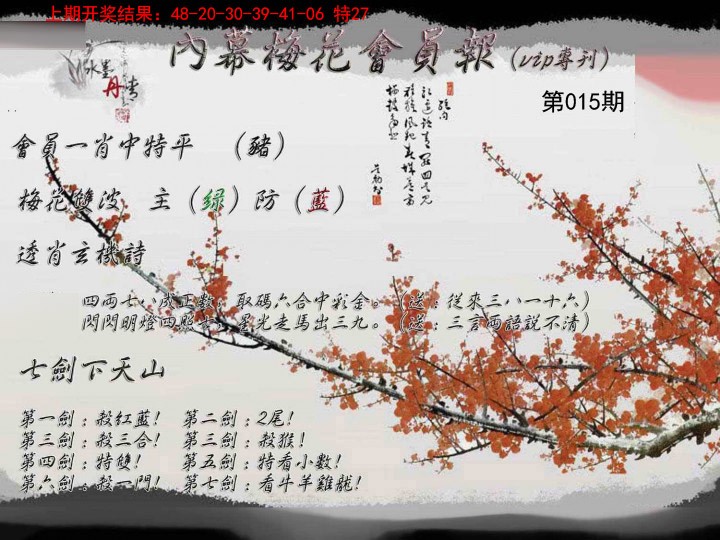 上期开奖结果：48-20-30-39-41-06 特27
內幕梅花會員報(vip專刊)
水墨
丹青
第015期
會員一肖中特平 （豬）
梅花雙波 主（绿）防（藍）
透肖玄機詩
四両七八成正數，取碼六合中彩金。（送：從來三八一十六）
閃閃明燈四照去，星光走馬出三九。（送：三言兩語説不清）
七劍下天山
第一劍：殺紅藍! 第二劍：2尾!
第三劍：殺三合! 第三劍：殺猴!
第四劍：特雙! 第五劍：特看小數!
第六劍：殺一門! 第七劍：看牛羊雞龍!